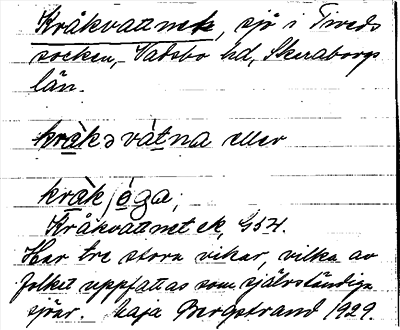 Kråkvattnet, sjö i Tiveds
socken, Vadsbo hd, Skaraborgs
län.
kràkə vàtna eller
kràkjöga,
Kråkvattnet ek, G54.
Har tre stora vikar, vilka av
folket uppfattas som självständiga
sjöar. Maja Bergstrand 1929.